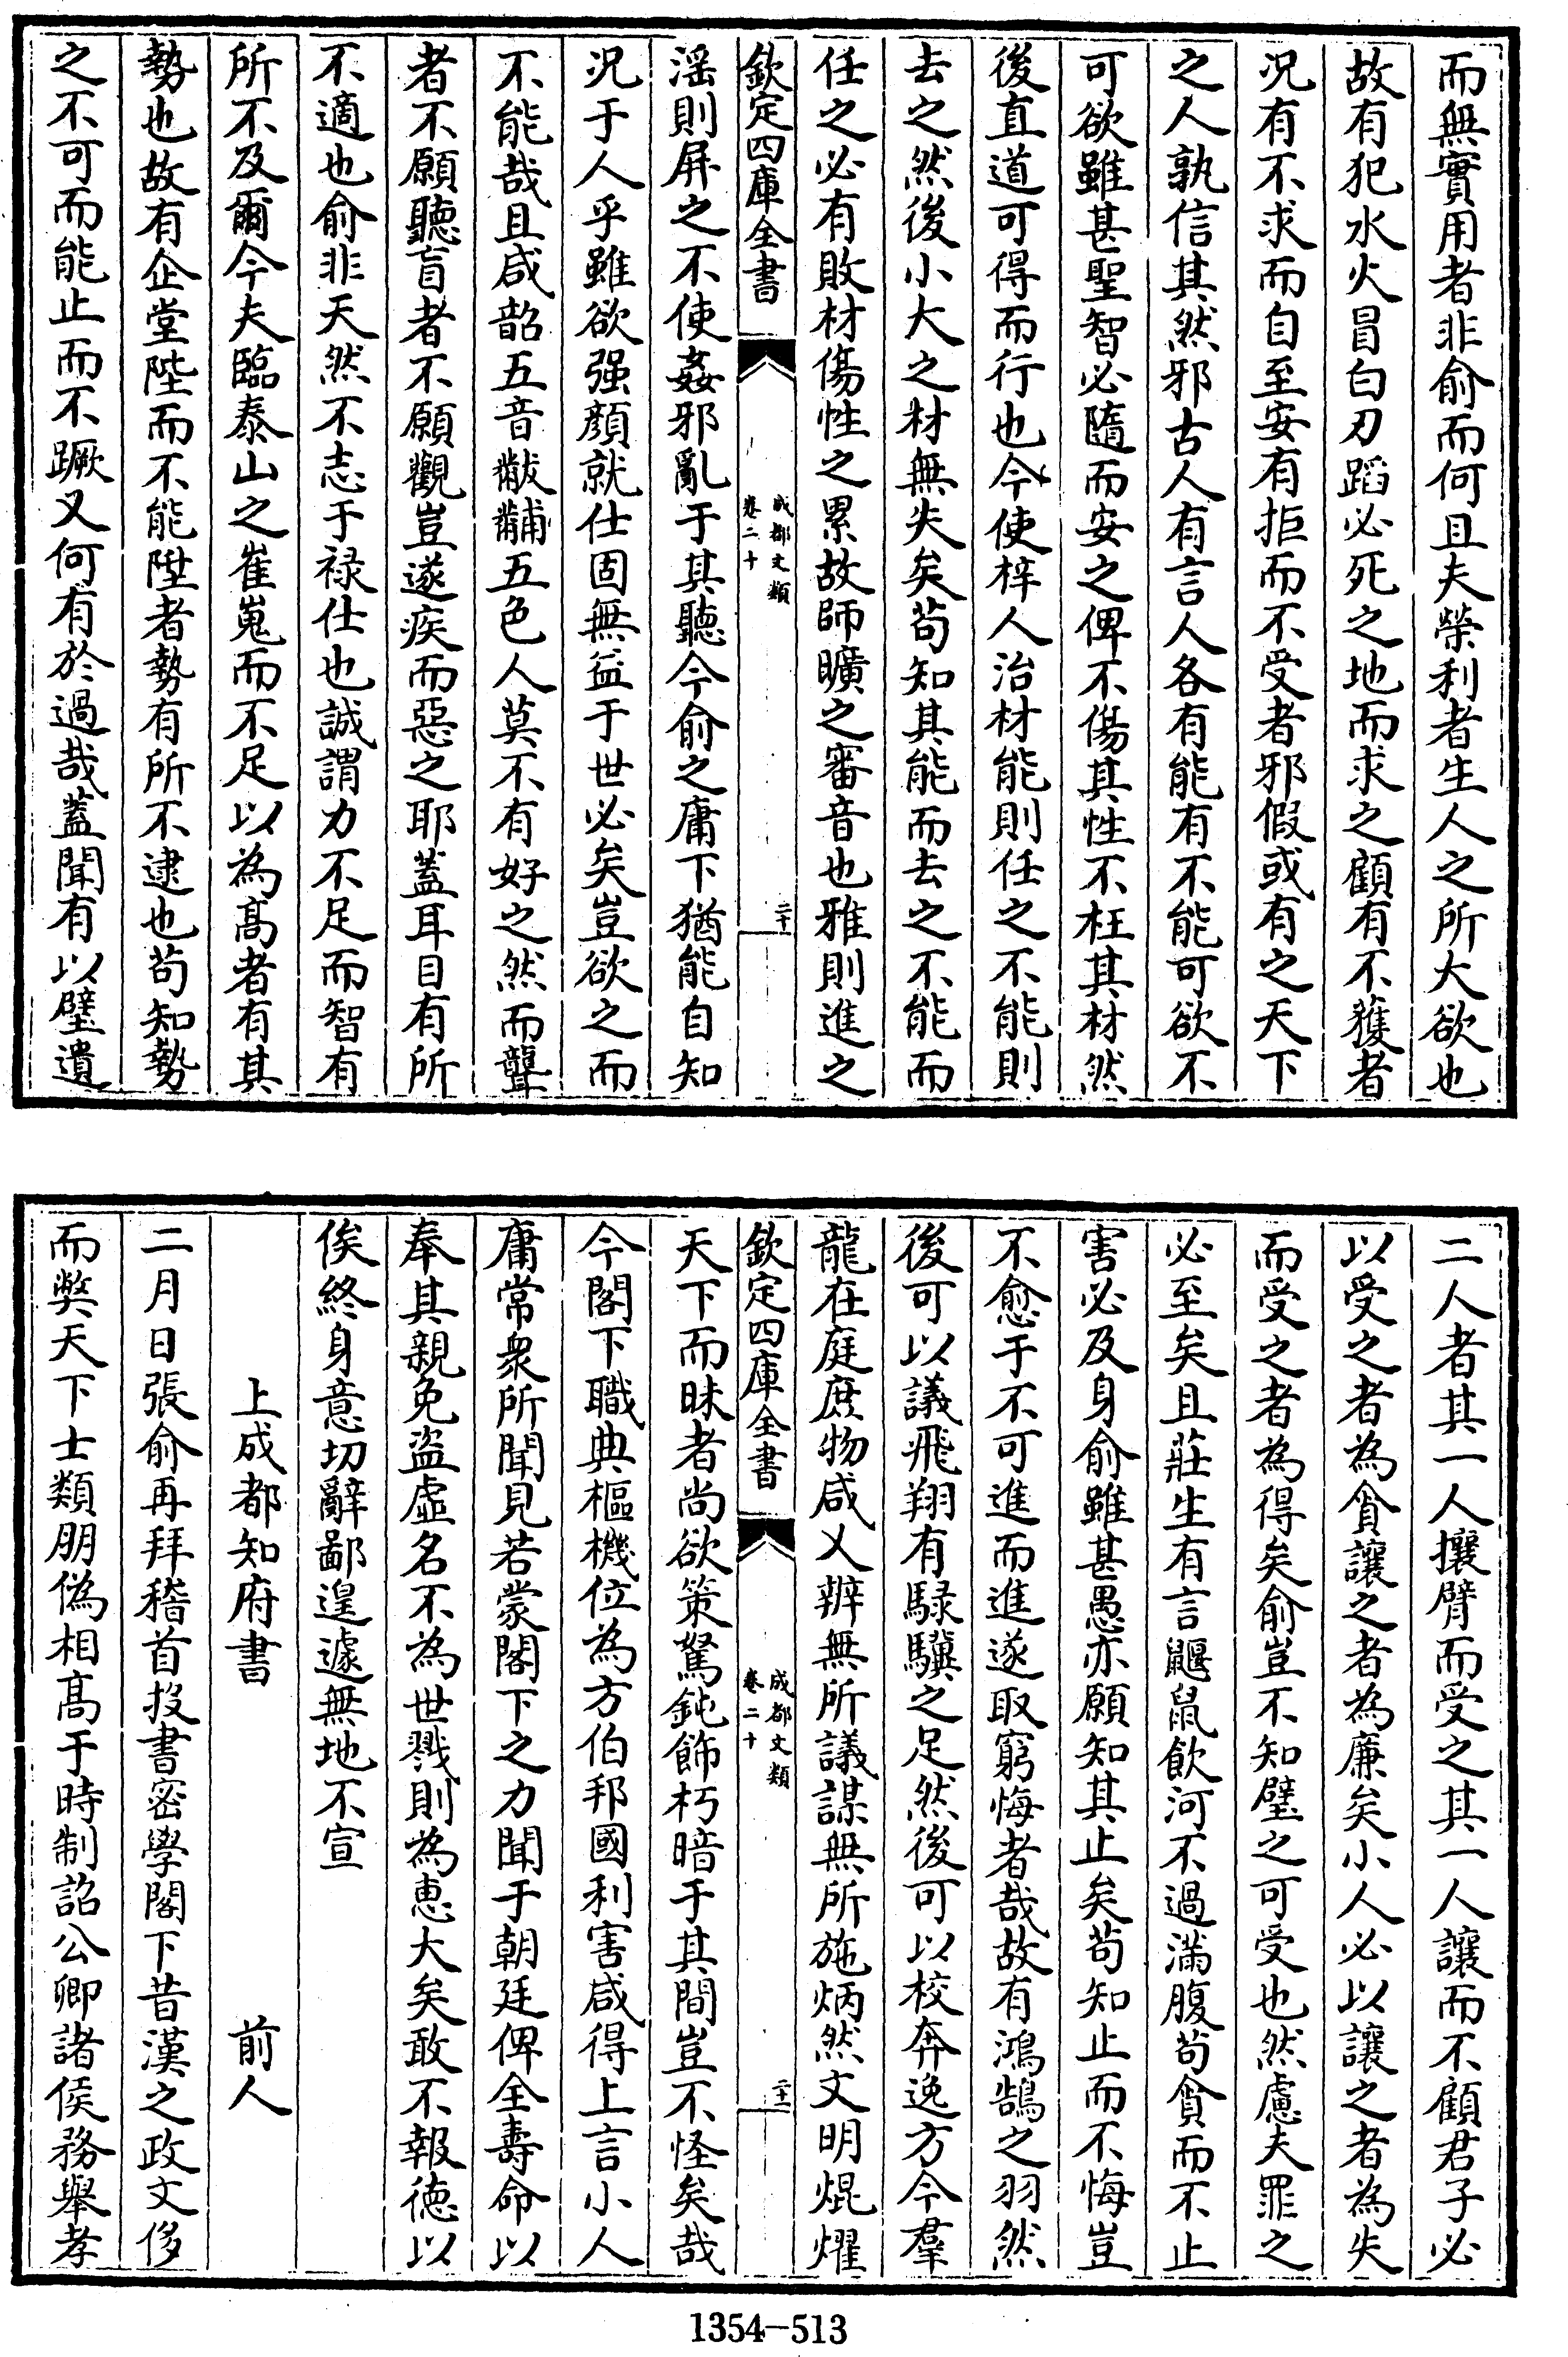 而無實用者非俞而何且夫榮利者生人之所大欲也
故有犯水火冒白刃蹈必死之地而求之顧有不獲者
況有不求而自至安有拒而不受者邪假或有之天下
之人孰信其然邪古人有言人各有能有不能可欲不
可欲雖甚聖智必隨而安之俾不傷其性不枉其材然
後直道可得而行也今使梓人治材能則任之不能則
去之然後小大之材無失矣苟知其能而去之不能而
任之必有敗材傷性之累故師曠之審音也雅則進之
欽定四庫全書
成都文類
卷二十
二十
滛則屏之不使姦邪亂于其聽今俞之庸下猶能自知
況于人乎雖欲强顔就仕固無益于世必矣豈欲之而
不能哉且咸韶五音黻黼五色人莫不有好之然而聾
者不願聽盲者不願觀豈遂疾而惡之耶蓋耳目有所
不適也俞非天然不志于禄仕也誠謂力不足而智有
所不及爾今夫臨泰山之崔嵬而不足以為髙者有其
勢也故有企堂陛而不能陞者勢有所不逮也苟知勢
之不可而能止而不蹶又何有於過哉蓋聞有以璧遺
二人者其一人攘臂而受之其一人讓而不顧君子必
以受之者為貪讓之者為廉矣小人必以讓之者為失
而受之者為得矣俞豈不知璧之可受也然慮夫罪之
必至矣且莊生有言鼴鼠飲河不過滿腹苟貪而不止
害必及身俞雖甚愚亦願知其止矣苟知止而不悔豈
不愈于不可進而進遂取窮悔者哉故有鴻鵠之羽然
後可以議飛翔有騄驥之足然後可以校奔逸方今羣
龍在庭庶物咸乂辨無所議謀無所施炳然文明焜燿
欽定四庫全書
成都文類
卷二十
二十一
天下而昧者尚欲策駑鈍飾朽暗于其間豈不怪矣哉
今閣下職典樞機位為方伯邦國利害咸得上言小人
庸常衆所聞見若蒙閣下之力聞于朝廷俾全壽命以
奉其親免盜虚名不為世戮則為惠大矣敢不報德以
俟終身意切辭鄙遑遽無地不宣
上成都知府書 前人
二月日張俞再拜稽首投書密學閣下昔漢之政文侈
而獘天下士類朋偽相髙于時制詔公卿諸侯務舉孝
1354-513